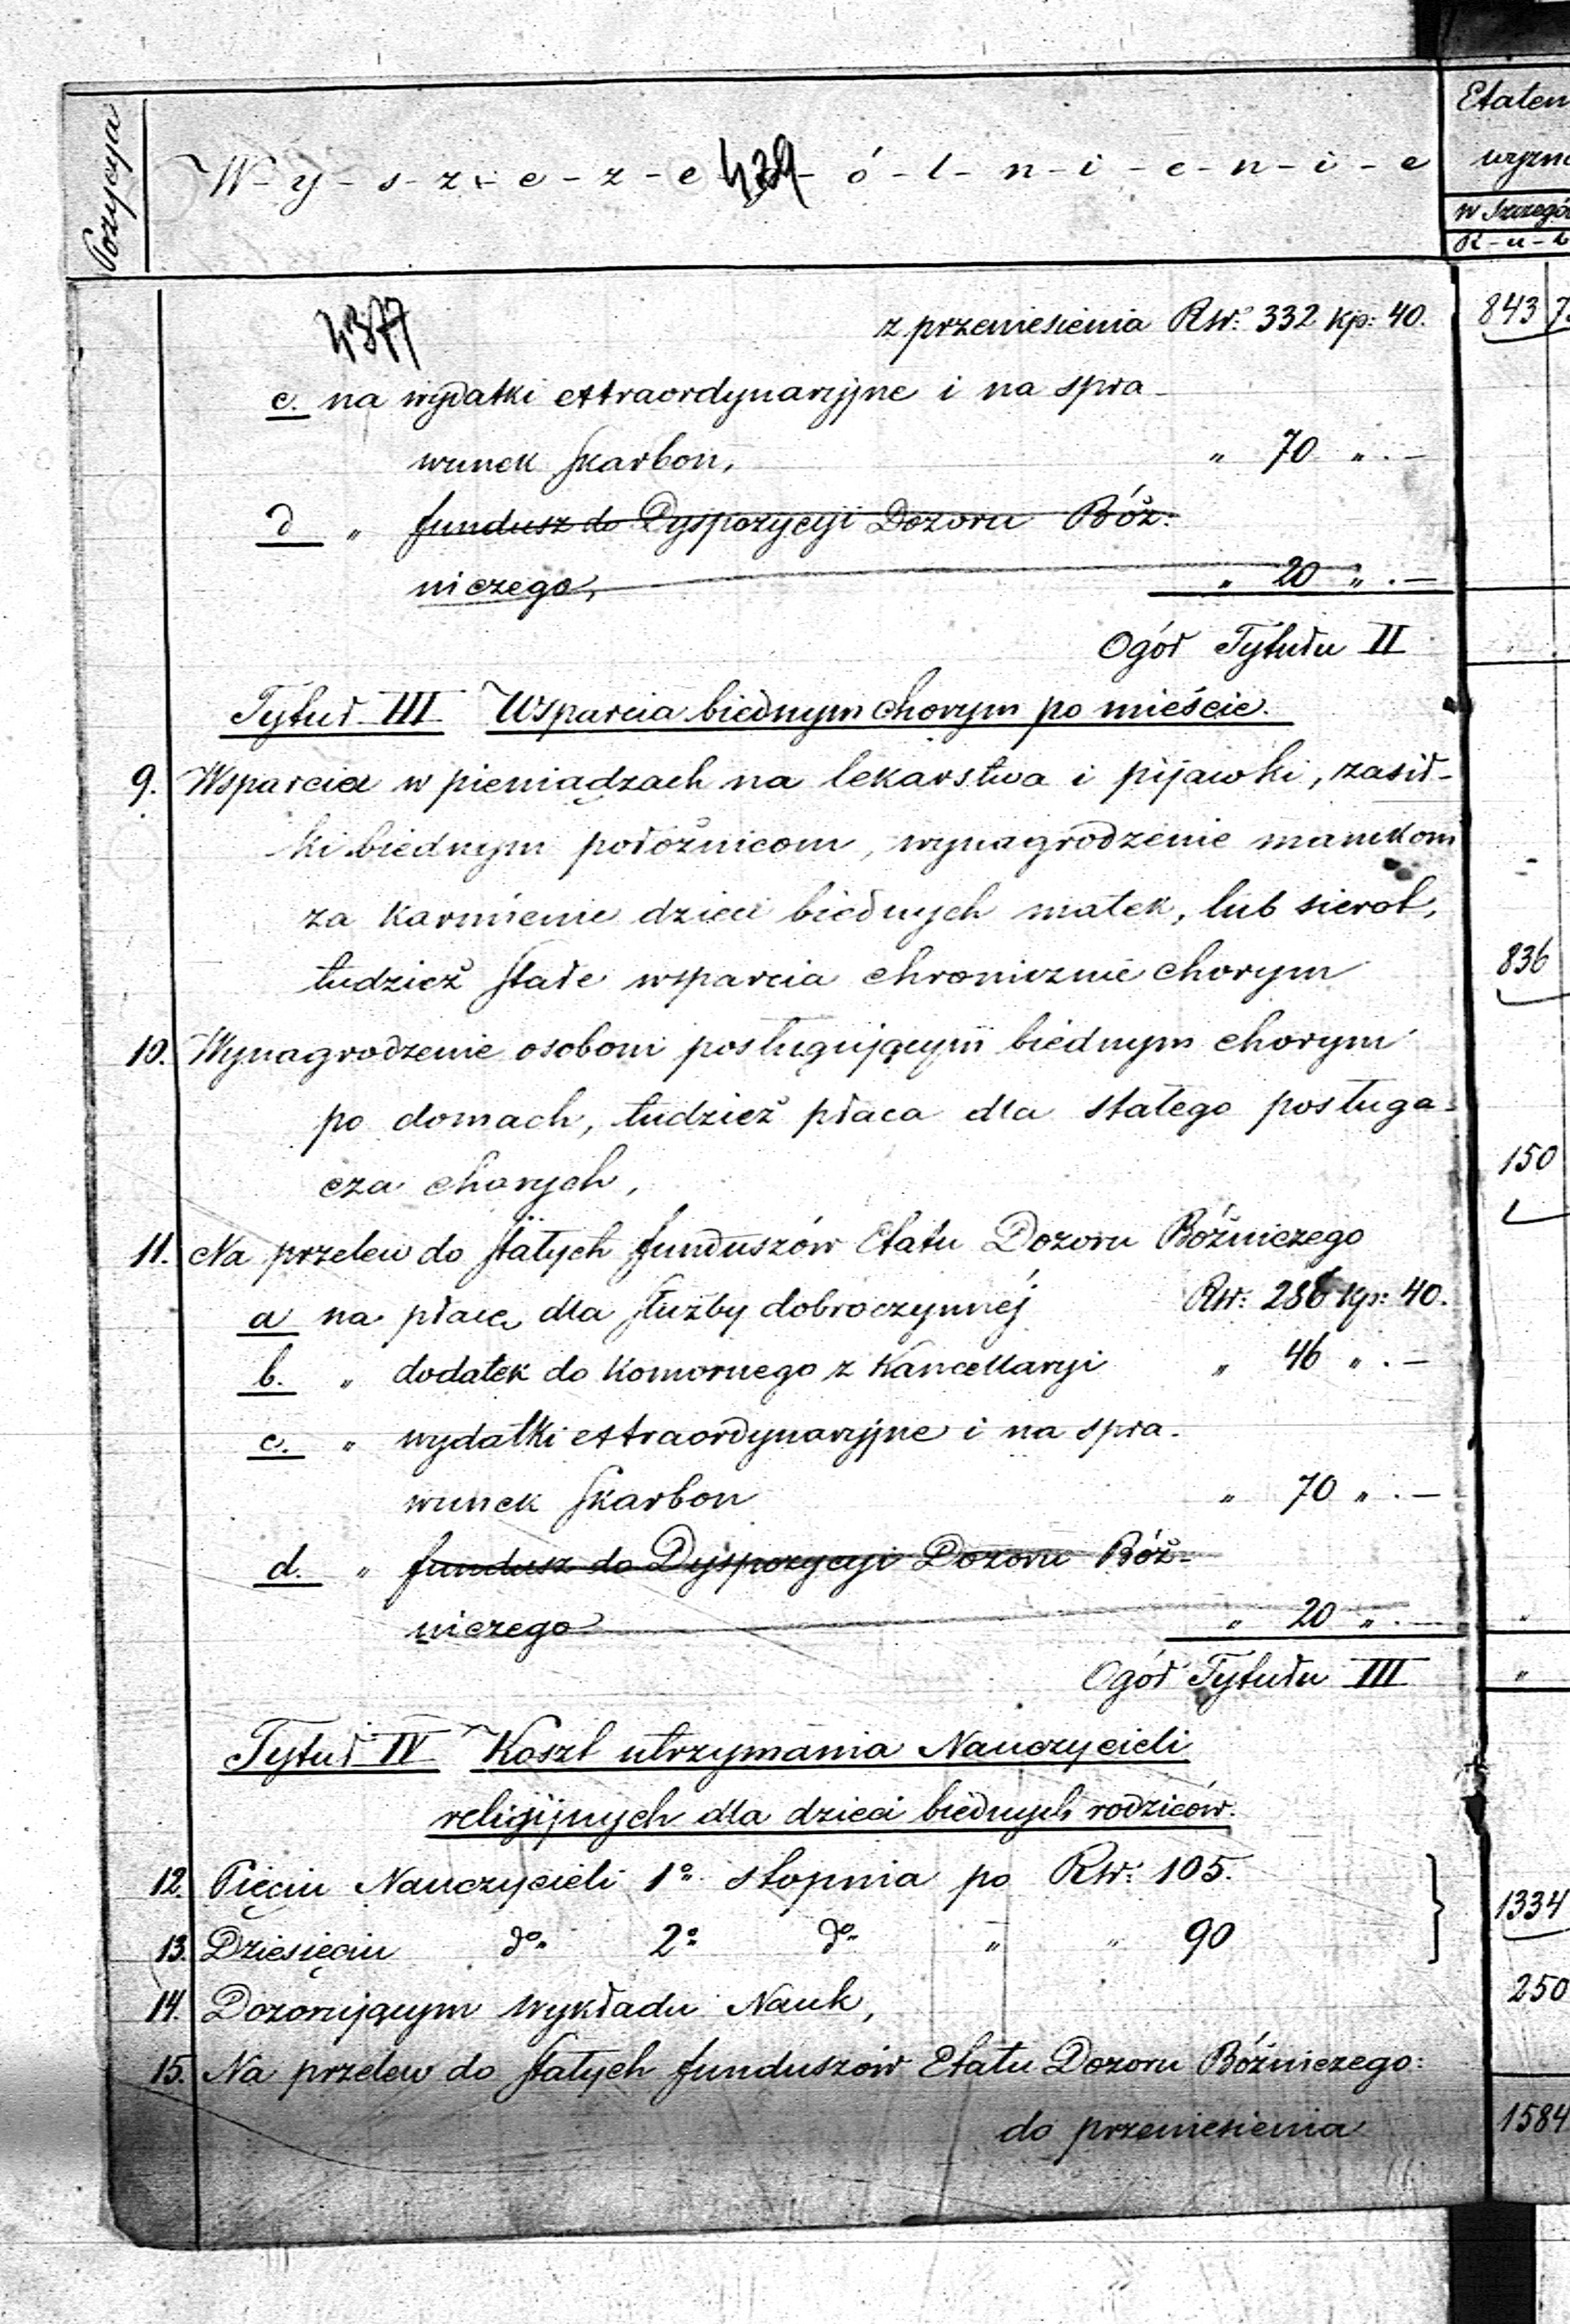 Pozycya
W-y-s-z-c-z-e-g-ó-l-n-i-e-n-i-e
Etatem
wyzn
w Szczegó
R-u-b
z przeniesienia Rsr: 332 kp: 40.
843 7
c. na wydatki extraordynaryjne i na spra-
wunek skarbon, „ 70 „ . —
d „ fundusz do Dyspozycyi Dozoru Bóż-
niczego, „ 20 „ . —
Ogół Tytułu II
Tytuł III Wsparcia biednym chorym po mieście.
9. Wsparcia w pieniądzach na lekarstwa i pijawki, zasił-
ki biednym położnicom, wynagrodzenie mamkom
za karmienie dzieci biednych matek, lub sierot,
tudzież stałe wsparcia chronicznie chorym 836
10. Wynagrodzenie osobom posługującym biednym chorym
po domach, tudzież płaca dla stałego posługa-
cza chorych, 150
11. Na przelew do stałych funduszów Etatu Dozoru Bóżniczego
a na płacę dla służby dobroczynnej Rsr: 286 kp: 40.
b. „ dodatek do komornego z Kancellaryi „ 46 „ . —
c. „ wydatki extraordynaryjne i na spra-
wunek skarbon „ 70 „ . —
d. „ fundusz do Dyspozycyi Dozoru Bóż-
niczego „ 20 „ . — „
Ogół Tytułu III „
Tytuł IV Koszt utrzymania Nauczycieli
religijnych dla dzieci biednych rodziców.
12. Pięciu Nauczycieli 1º stopnia po Rsr: 105.
1334
13. Dziesięciu dº 2º dº „ „ 90
14. Dozorującym wykładu Nauk, 250
15. Na przelew do stałych funduszów Etatu Dozoru Bóżniczego:
do przeniesienia 1584